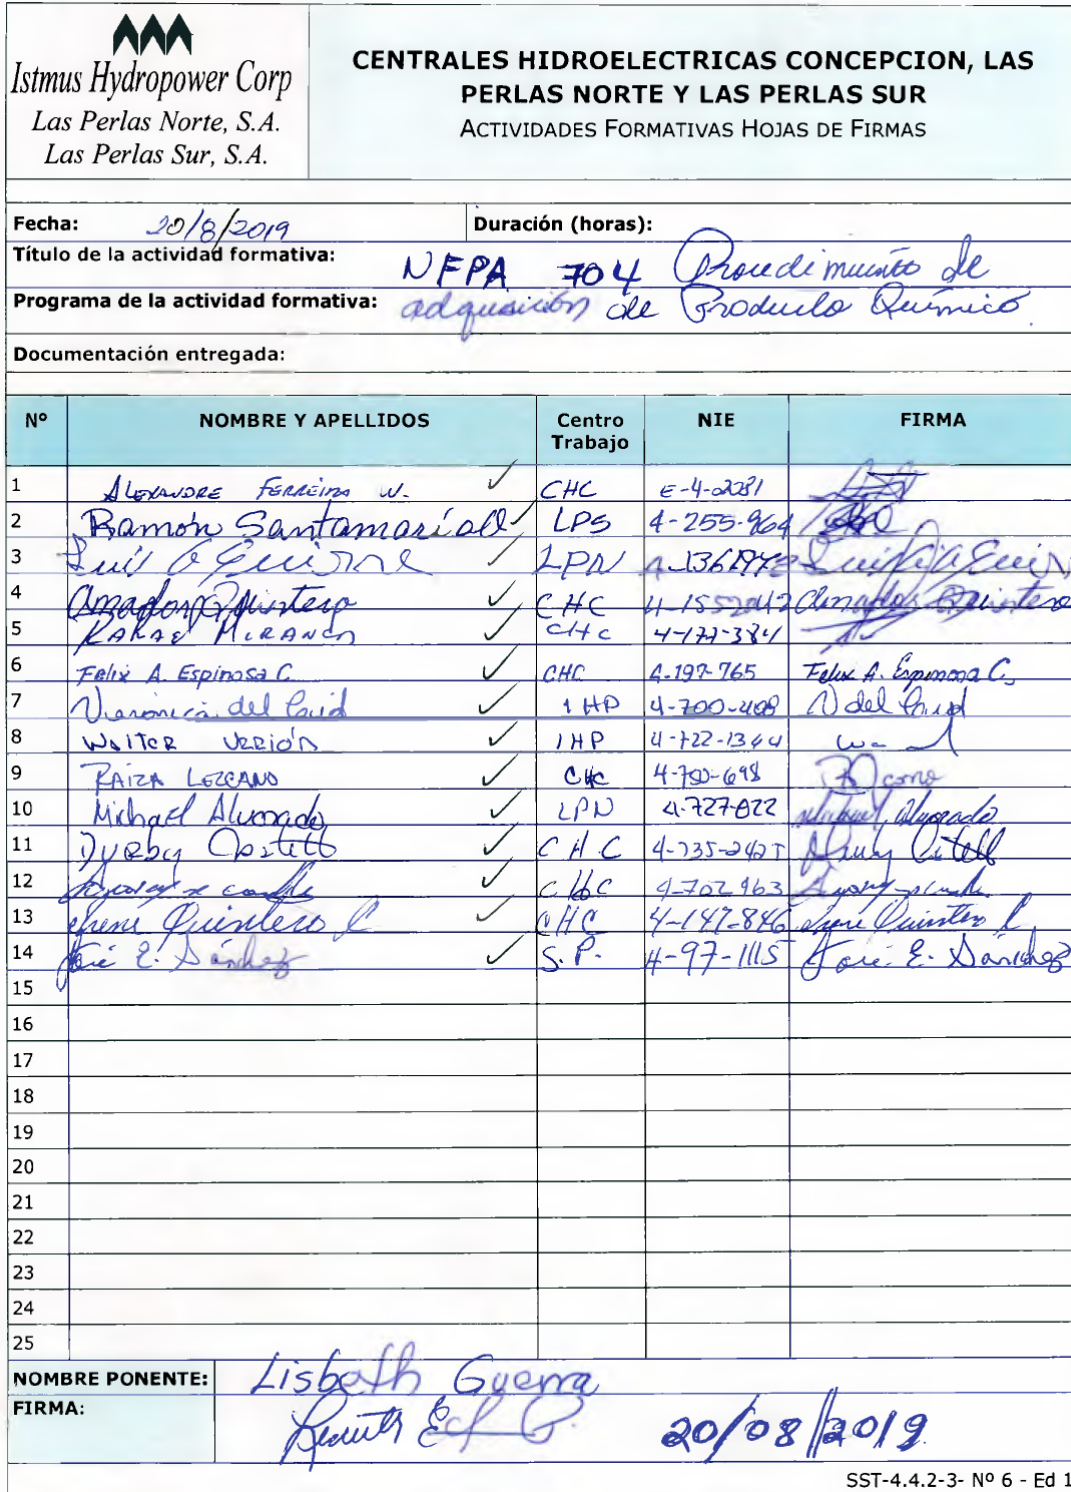 Istmus Hydropower Corp
Las Perlas Norte, S.A.
Las Perlas Sur, S.A.
CENTRALES HIDROELECTRICAS CONCEPCION, LAS
PERLAS NORTE Y LAS PERLAS SUR
ACTIVIDADES FORMATIVAS HOJAS DE FIRMAS
Fecha: 20/8/2019 Duración (horas):
Título de la actividad formativa: NFPA 704 Procedimiento de
Programa de la actividad formativa: adquisición de Producto Químico
Documentación entregada:
Nº NOMBRE Y APELLIDOS Centro Trabajo NIE FIRMA
1 ALEXANDRE FERREIRA W. ✓ CHC E-4-2281
2 Ramón Santamaría ✓ LPS 4-255-964
3 Luis A Quiroz ✓ LPN
4 Amador Quintero ✓ CHC Amador Quintero
5 RAFAEL MIRANDA ✓ CHC 4-177-384
6 Felix A. Espinosa C. ✓ CHC 4-197-765 Felix A. Espinosa C.
7 Veronica del Cid ✓ IHP 4-700-408 V del Cid
8 WALTER ✓ IHP 4-722-1344
9 RAIZA LEZCANO ✓ CHC 4-780-698
10 Michael Alvarado ✓ LPN 4-727-822 Michael Alvarado
11 ✓ CHC
12 ✓ CHC 4-702 963
13 Irene Quintero C ✓ CHC 4-147-846 Irene Quintero C
14 José E. Sánchez ✓ S.P. 4-97-1115 José E. Sánchez
15
16
17
18
19
20
21
22
23
24
25
NOMBRE PONENTE: Lisbeth Guerra
FIRMA: 20/08/2019
SST-4.4.2-3- Nº 6 - Ed 1